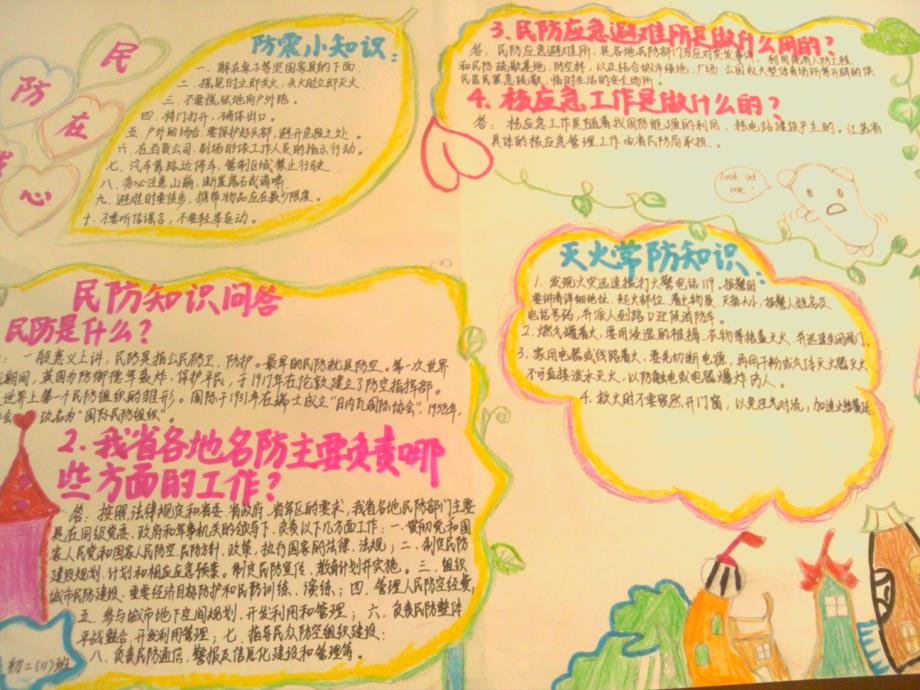 民
防
在
心
防震小知识：
一、躲在桌子等坚固家具的下面．
二、摇晃时立即关火，失火时立即灭火．
三、不要慌张地向户外跑．
四、将门打开，确保出口．
五、户外的场合，要保护好头部，避开危险之处．
六、在百货公司、剧场时依工作人员的指示行动．
七、汽车靠路边停车，管制区域禁止行驶
八、务必注意山崩、断崖落石或海啸．
九、避难时要徒步，携带物品应在最少限度．
十、不要听信谣言，不要轻举妄动．
民防知识问答
民防是什么？
：一般意义上讲，民防是指公民防卫、防护。最早的民防就是防空。第一次世界
期间，英国为防御德军轰炸，保护平民，于1917年在伦敦建立了防空指挥部。
世界上第一个民防组织的雏形。国际于1931年在瑞士成立“日内瓦国际协会”，1958年，
会 改名为“国际民防组织”．
2.我省各地名防主要负责哪
些方面的工作？
答：按照法律规定和省委、省政府、省军区的要求，我省各地民防部门主要
是在同级党委、政府和军事机关的领导下，负责以下几方面工作：一、贯彻党和国
家人民党和国家人民防空、民防方针、政策，执行国家的法律、法规；二、制定民防
建设规划、计划和相应应急预案。制定民防宣传、教育计划并实施。三、组织
城市民防建设、重要经济目标防护和民防训练、演练；四、管理人民防空经费，
五、参与城市地下空间规划、开发利用和管理；六、负责民防整体
平战整合，开发利用管理；七、指导民众防空组织建设；
八、负责民防通信、警报及信息化建设和管理等。
初二（11）班
3.民防应急避难所是做什么用的？
答：民防应急避难所，是各地民防部门为应对突发事件，利用现有人防工程
和民防疏散基地、防空林，以及结合城市绿地、广场、公园较大整体育场所等开辟的供
民居民紧急疏散、临时生活的安全场所。
4.核应急工作是做什么的？
答：核应急工作是随着我国防能源的利用、核电站建设产生的。江苏省
具体的核应急管理工作由省民防局承担．
look at
me！
灭火常防知识：
1、发现火灾迅速拨打火警电话119，报警时
要讲清详细地址、起火部位、着火物质、火势大小、报警人姓名及
电话号码，并派人到路口迎候消防车。
2、燃气罐着火，要用浸湿的被褥、衣物等捂盖灭火，并迅速关闭阀门。
3、家用电器或线路着火，要先切断电源，再用干粉或气体灭火器灭火
不可直接泼水灭火，以防触电或电器爆炸伤人。
4、救火时不要贸然开门窗，以免空气对流，加速火势蔓延